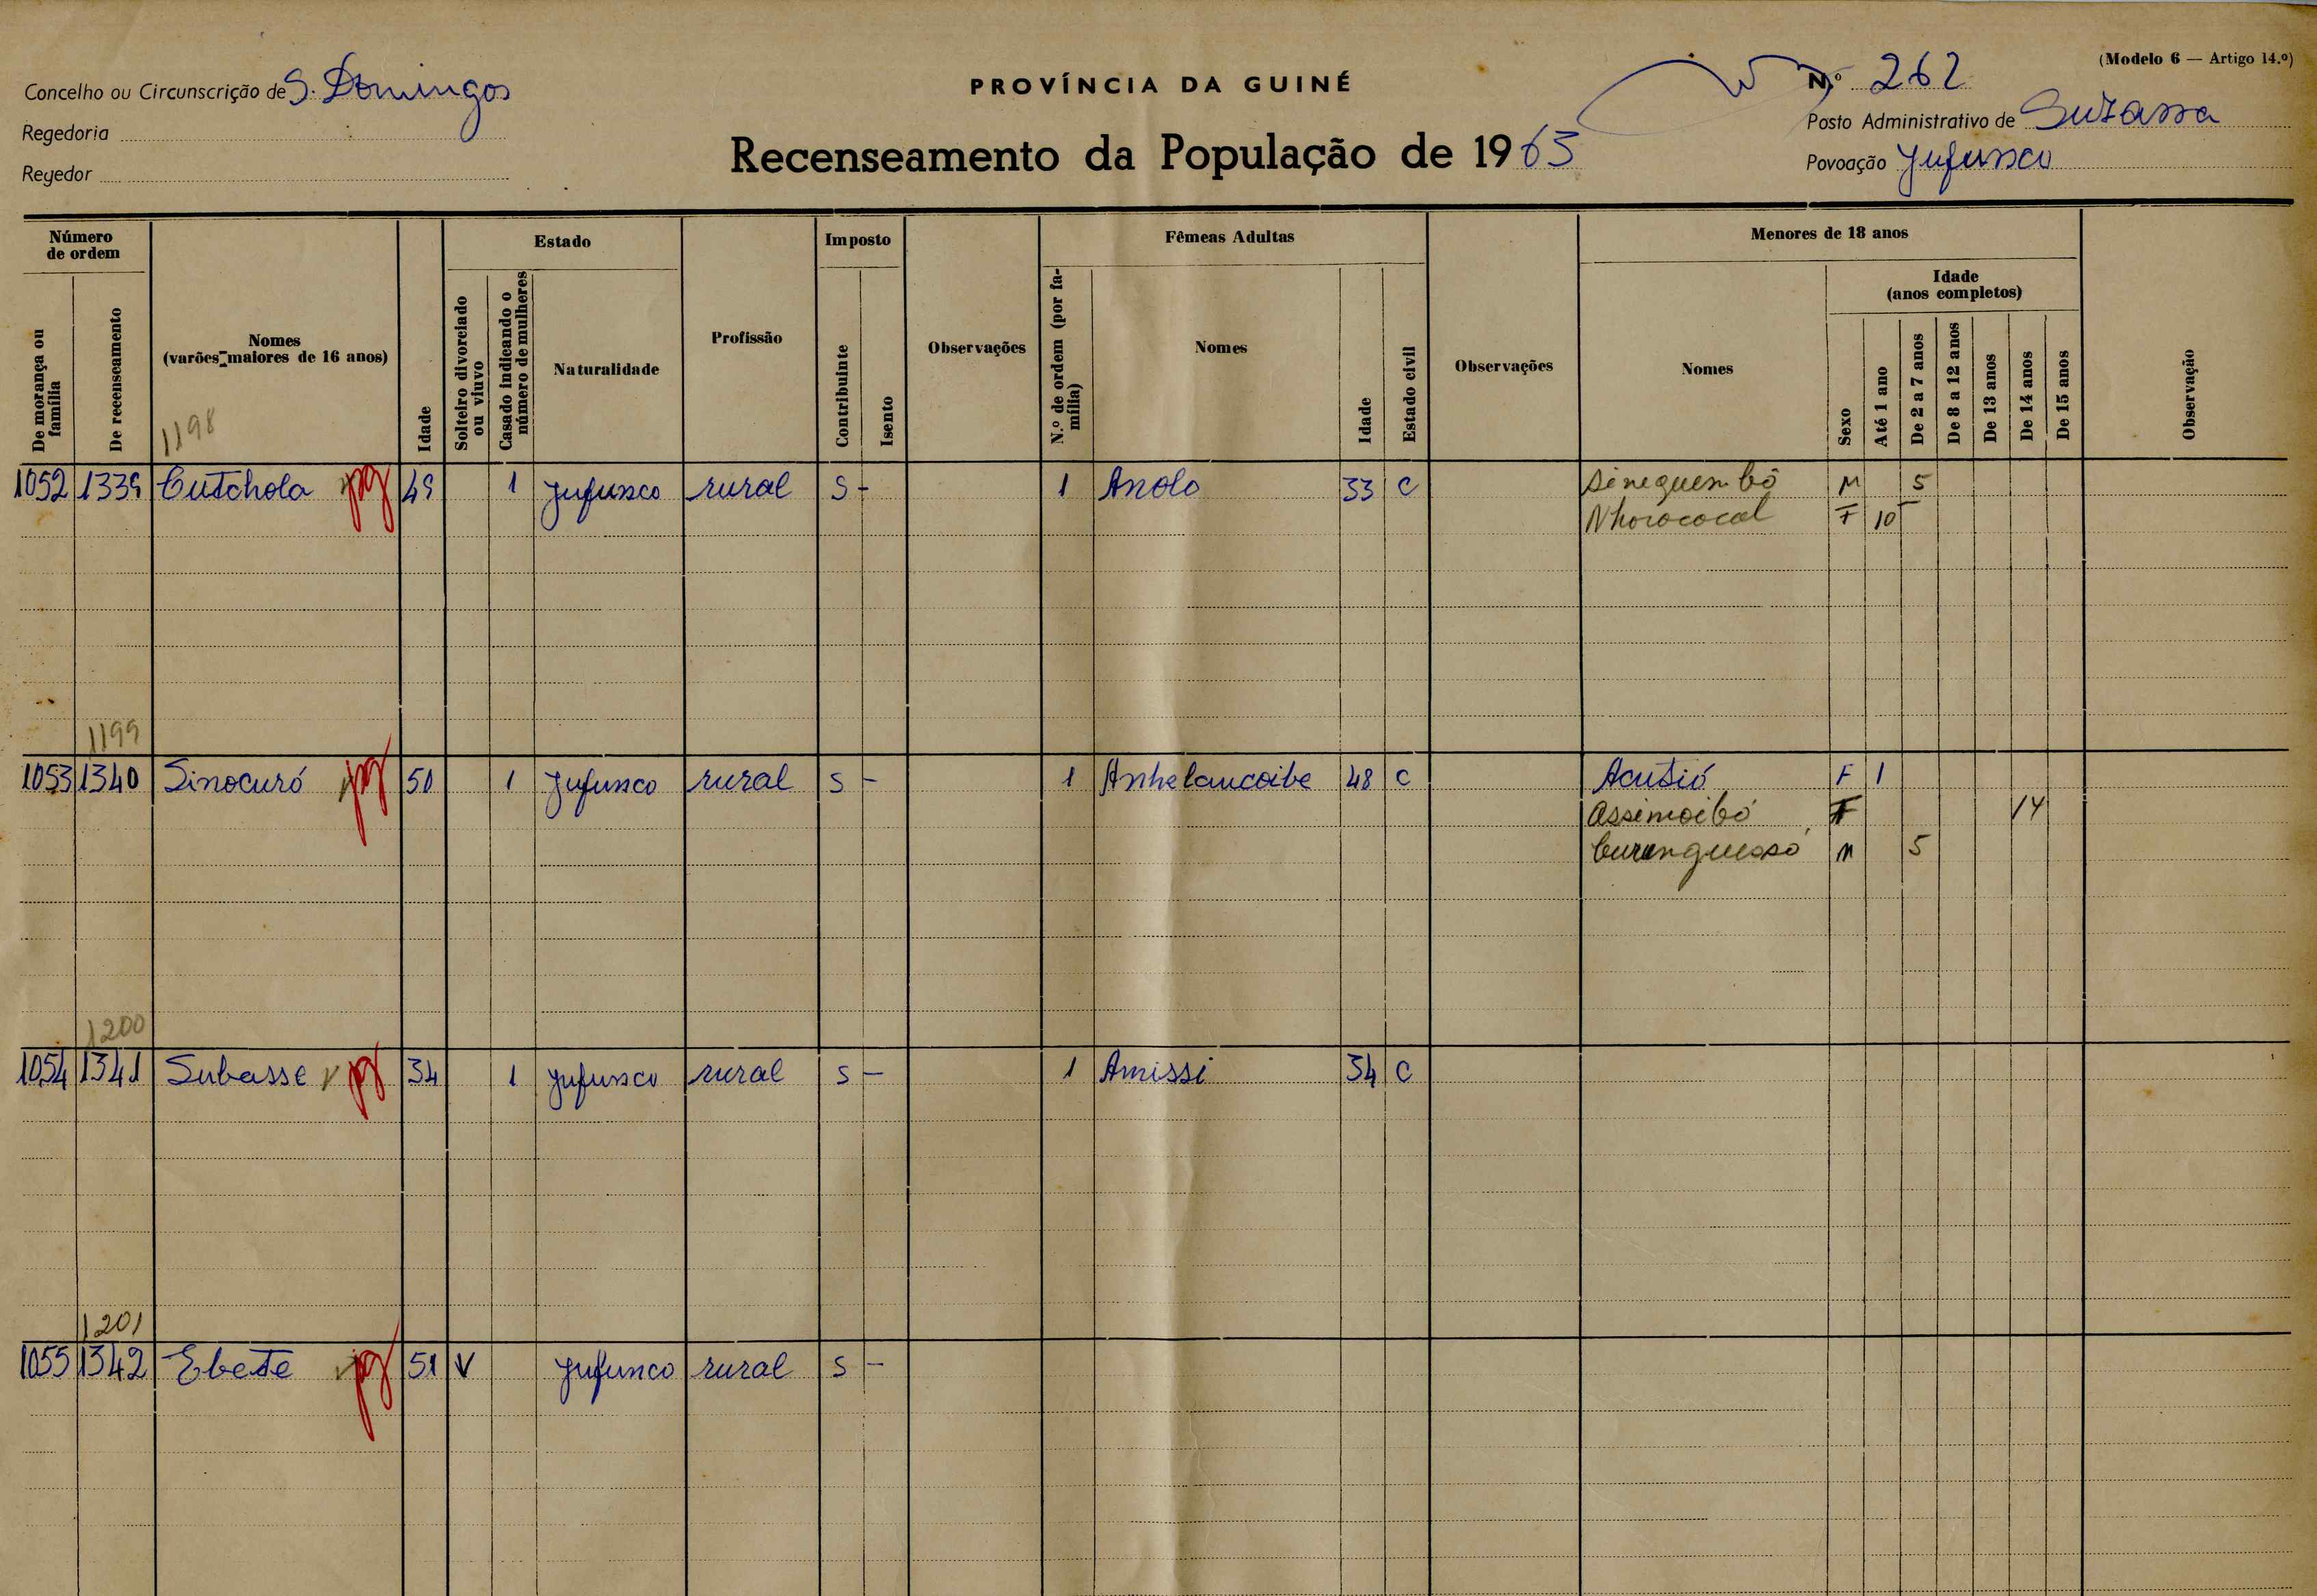 (Modelo 6 — Artigo 14.º)
Concelho ou Circunscrição de S. Domingos
PROVÍNCIA DA GUINÉ
N.º 262
Regedoria
Posto Administrativo de Suzana
Regedor
Recenseamento da População de 1963
Povoação Jufunco
Número de ordem
De morança ou família
De recenseamento
Nomes
(varões maiores de 16 anos)
Idade
Estado
Solteiro divorciado ou viuvo
Casado indicando o número de mulheres
Naturalidade
Profissão
Imposto
Contribuinte
Isento
Observações
Fêmeas Adultas
N.º de ordem (por família)
Nomes
Idade
Estado civil
Observações
Menores de 18 anos
Nomes
Sexo
Idade
(anos completos)
Até 1 ano
De 2 a 7 anos
De 8 a 12 anos
De 13 anos
De 14 anos
De 15 anos
Observação
1198
1052 1339 Cutchola 49 1 Jufunco rural S - 1 Anolo 33 C Sinequembó M 5
Nhorococal F 10
1199
1053 1340 Sinocuró 50 1 Jufunco rural S - 1 Anhelancoibe 48 C Acutió F 1
Assimoibó F 14
Curenguessó M 5
1200
1054 1341 Subasse V 34 1 Jufunco rural S - 1 Amissi 34 C
1201
1055 1342 Ebete 51 V Jufunco rural S -